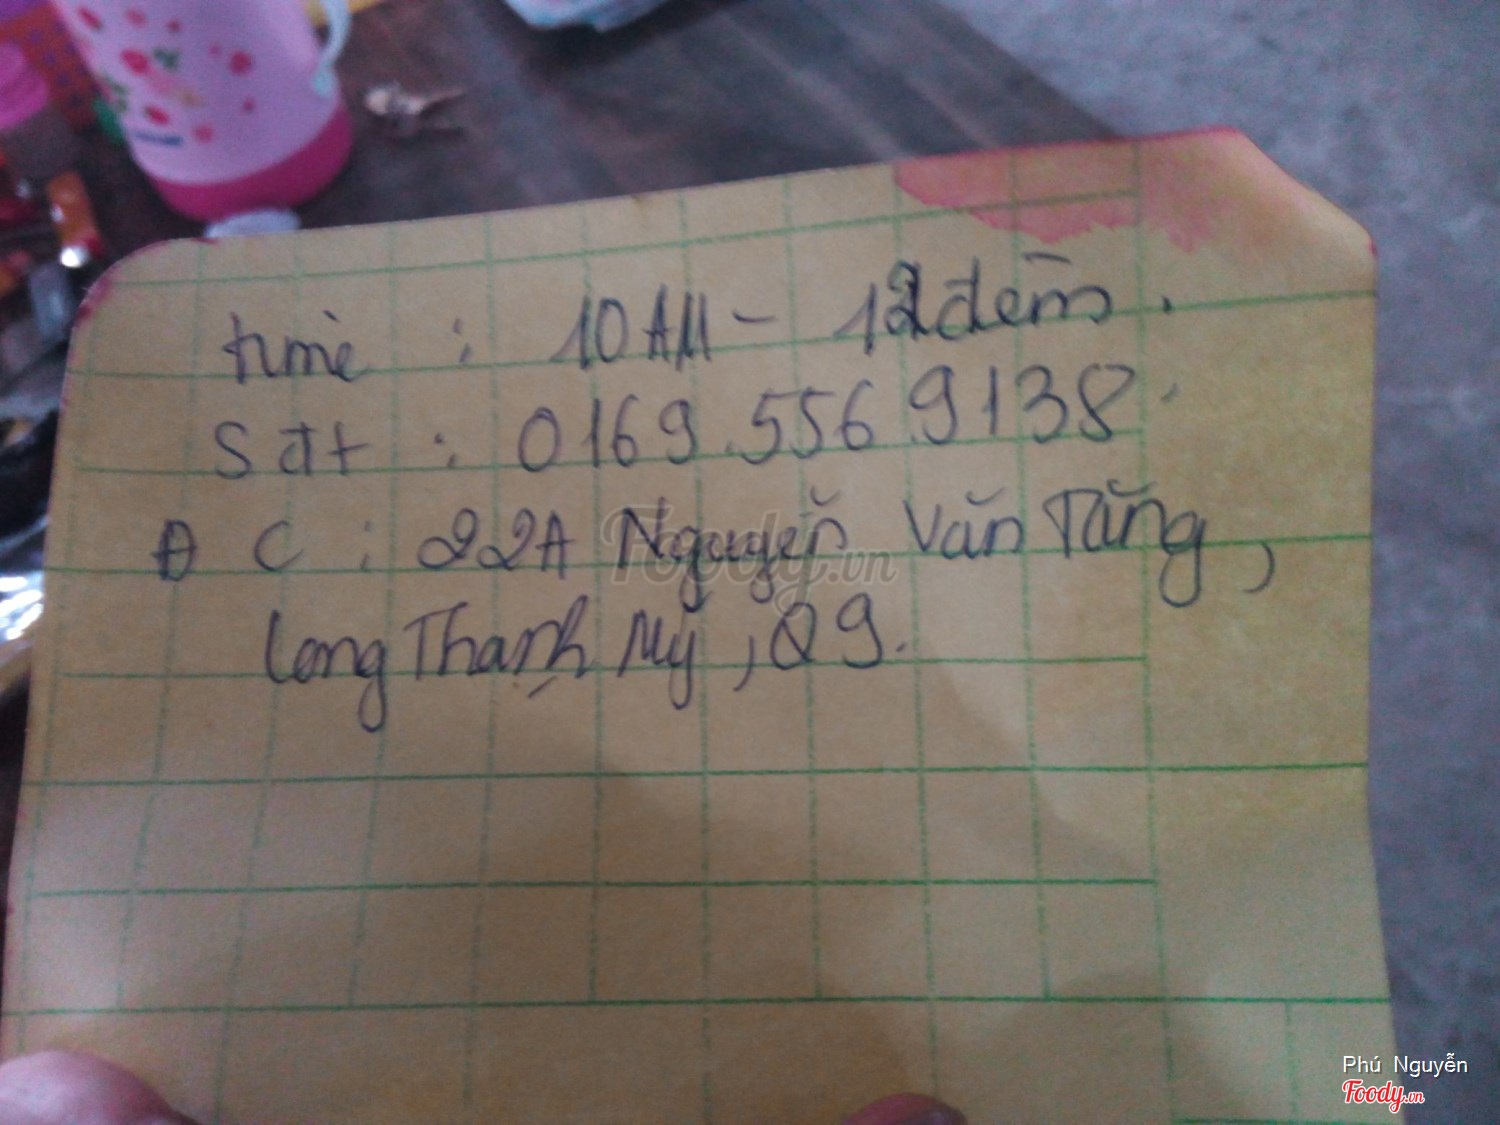 time : 10AM - 12 đêm.
Sđt : 0169.556 9138.
ĐC : 22A Nguyễn Văn Tăng,
Long Thạnh Mỹ, Q9.
Foody.vn
Phú Nguyễn
Foody.vn